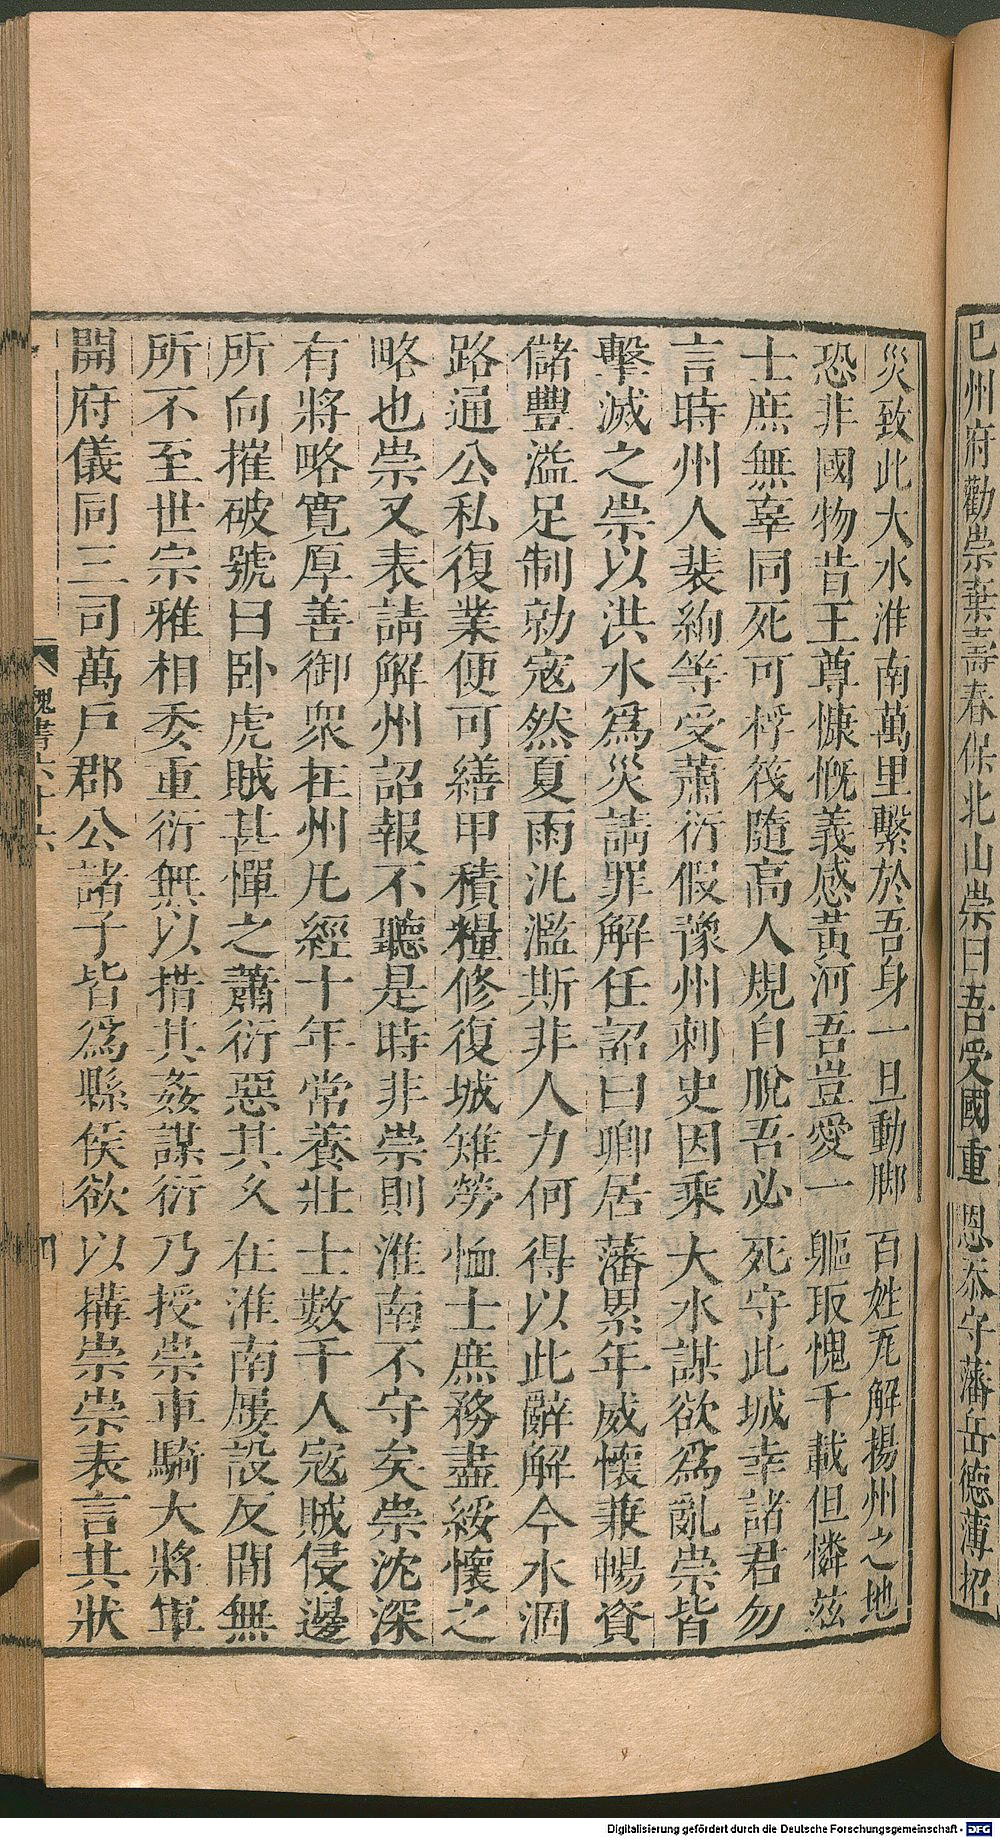 已州府勸崇棄壽春保北山崇曰吾受國重恩忝守藩岳德薄招
災致此大水淮南萬里繫於吾身一旦動脚百姓瓦解揚州之地
恐非國物昔王尊慷慨義感黃河吾豈愛一軀取愧千載但憐茲
士庶無辜同死可桴筏隨高人規自脫吾必死守此城幸諸君勿
言時州人裴絢等受蕭衍假豫州刺史因乘大水謀欲爲亂崇皆
擊滅之崇以洪水爲災請罪解任詔曰卿居藩累年威懷兼暢資
儲豐溢足制勍寇然夏雨汎濫斯非人力何得以此辭解今水涸
路通公私復業便可繕甲積糧修復城雉勞恤士庶務盡綏懷之
略也崇又表請解州詔報不聽是時非崇則淮南不守矣崇沈深
有將略寬厚善御衆在州凡經十年常養壯士數千人寇賊侵邊
所向摧破號曰卧虎賊甚憚之蕭衍惡其久在淮南屢設反間無
所不至世宗雅相委重衍無以措其姦謀衍乃授崇車騎大將軍
開府儀同三司萬戶郡公諸子皆爲縣侯欲以搆崇崇表言其狀
魏書六十六
四
Digitalisierung gefördert durch die Deutsche Forschungsgemeinschaft - DFG